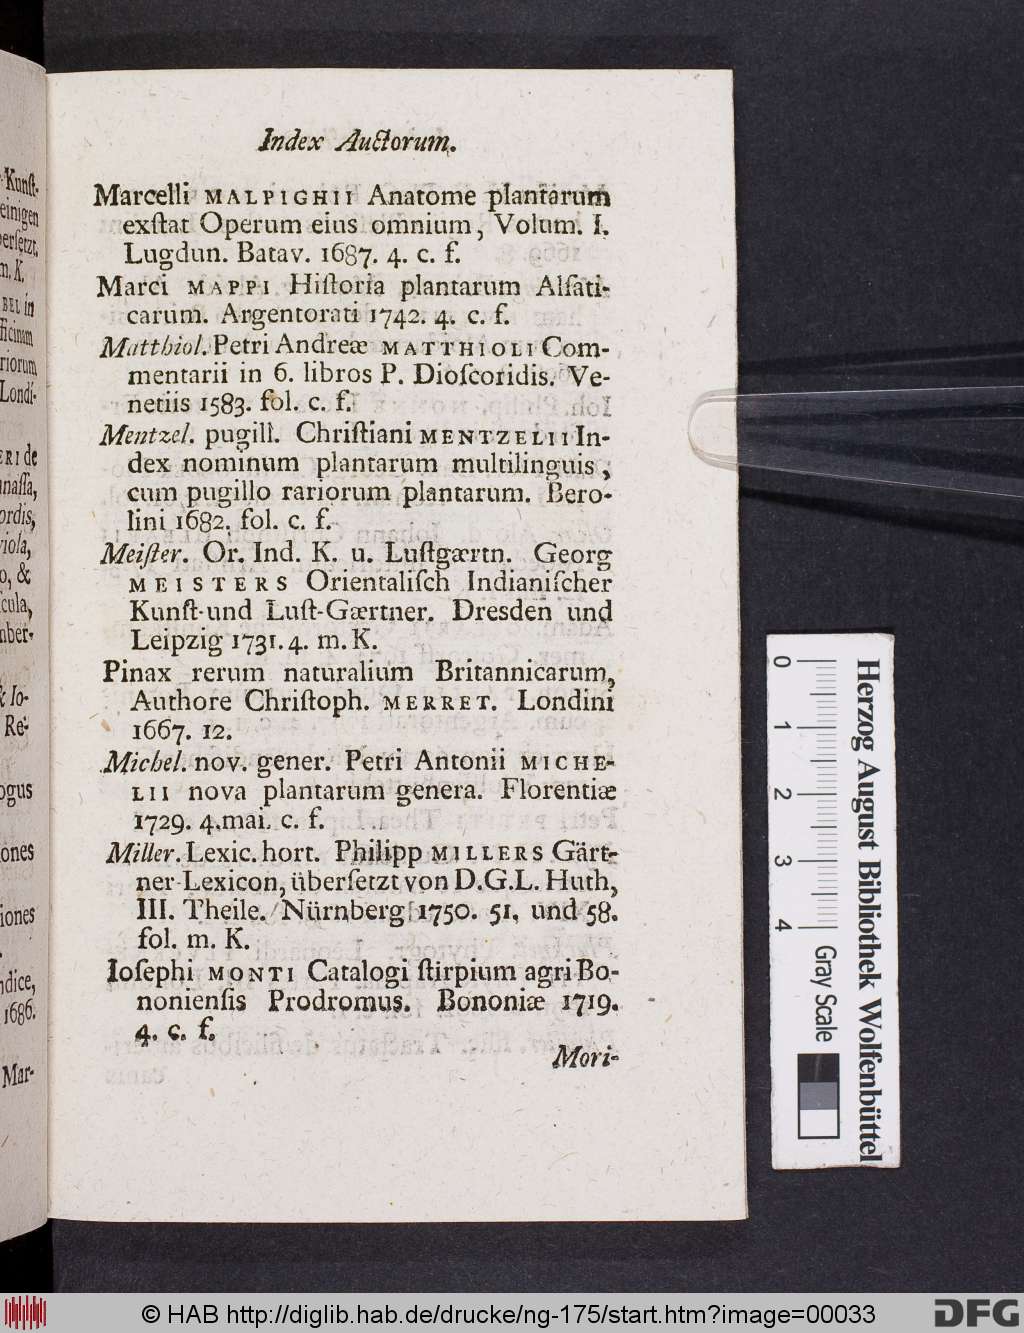 Kunſt-
einigen
erſetzt.
m. K.
BEL in
ficinam
riorum
Londi-
ERI de
naſſa,
ordis,
viola,
o, &
cula,
mber-
& Io-
Re-
ogus
iones
iones
ndice,
1686.
Mar-
Index Auctorum.
Marcelli MALPIGHII Anatome plantarum
exſtat Operum eius omnium, Volum. I.
Lugdun. Batav. 1687. 4. c. f.
Marci MAPPI Hiſtoria plantarum Alſati-
carum. Argentorati 1742. 4. c. f.
Matthiol. Petri Andreæ MATTHIOLI Com-
mentarii in 6. libros P. Dioſcoridis. Ve-
netiis 1583. fol. c. f.
Mentzel. pugill. Chriſtiani MENTZELII In-
dex nominum plantarum multilinguis,
cum pugillo rariorum plantarum. Bero-
lini 1682. fol. c. f.
Meiſter. Or. Ind. K. u. Luſtgærtn. Georg
MEISTERS Orientaliſch Indianiſcher
Kunſt-und Luſt-Gærtner. Dresden und
Leipzig 1731. 4. m. K.
Pinax rerum naturalium Britannicarum,
Authore Chriſtoph. MERRET. Londini
1667. 12.
Michel. nov. gener. Petri Antonii MICHE-
LII nova plantarum genera. Florentiæ
1729. 4.mai. c. f.
Miller. Lexic. hort. Philipp MILLERS Gärt-
ner-Lexicon, überſetzt von D.G.L. Huth,
III. Theile. Nürnberg 1750. 51, und 58.
fol. m. K.
Ioſephi MONTI Catalogi ſtirpium agri Bo-
nonienſis Prodromus. Bononiæ 1719.
4. c. f.
Mori-
0 1 2 3 4 Gray Scale
Herzog August Bibliothek Wolfenbüttel
© HAB http://diglib.hab.de/drucke/ng-175/start.htm?image=00033
DFG